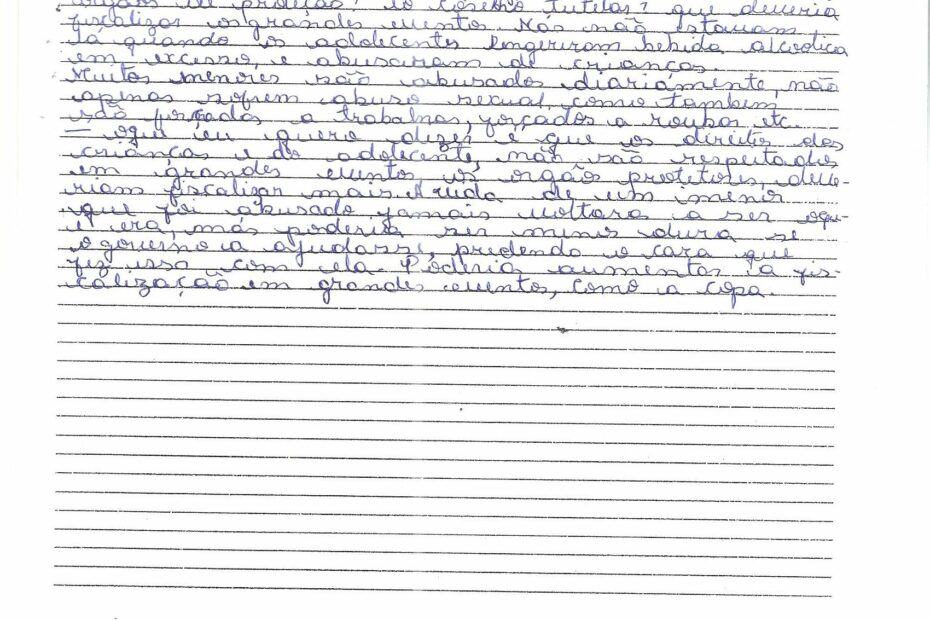 orgãos de proteção? do Coselho Tutelar? que deveria
fiscalizar os grandes eventos. Nós não estavam,
lá quando os adolecentes Engeriram bebida alcoolica
em excesso, e abusaram de crianças.
Muitos menores são abusados diariamente, não
apenas sofrem abuso sexual, como tambem
são forçados a trabalhos, forçados a roubos etc.
— oque eu quero dizer é que os direitos das
crianças e do adolecente, não são respeitados
em grandes eventos, os orgãos protetores, deve-
riam fiscalizar mais. A vida de um menor
que foi abusado jamais voltara a ser oqu-
e era, mas poderia ser menos dura se
o governo a ajudasse, predendo o cara que
fez isso com ela. Poderia aumentar a fis-
calização em grandes eventos, como a copa.